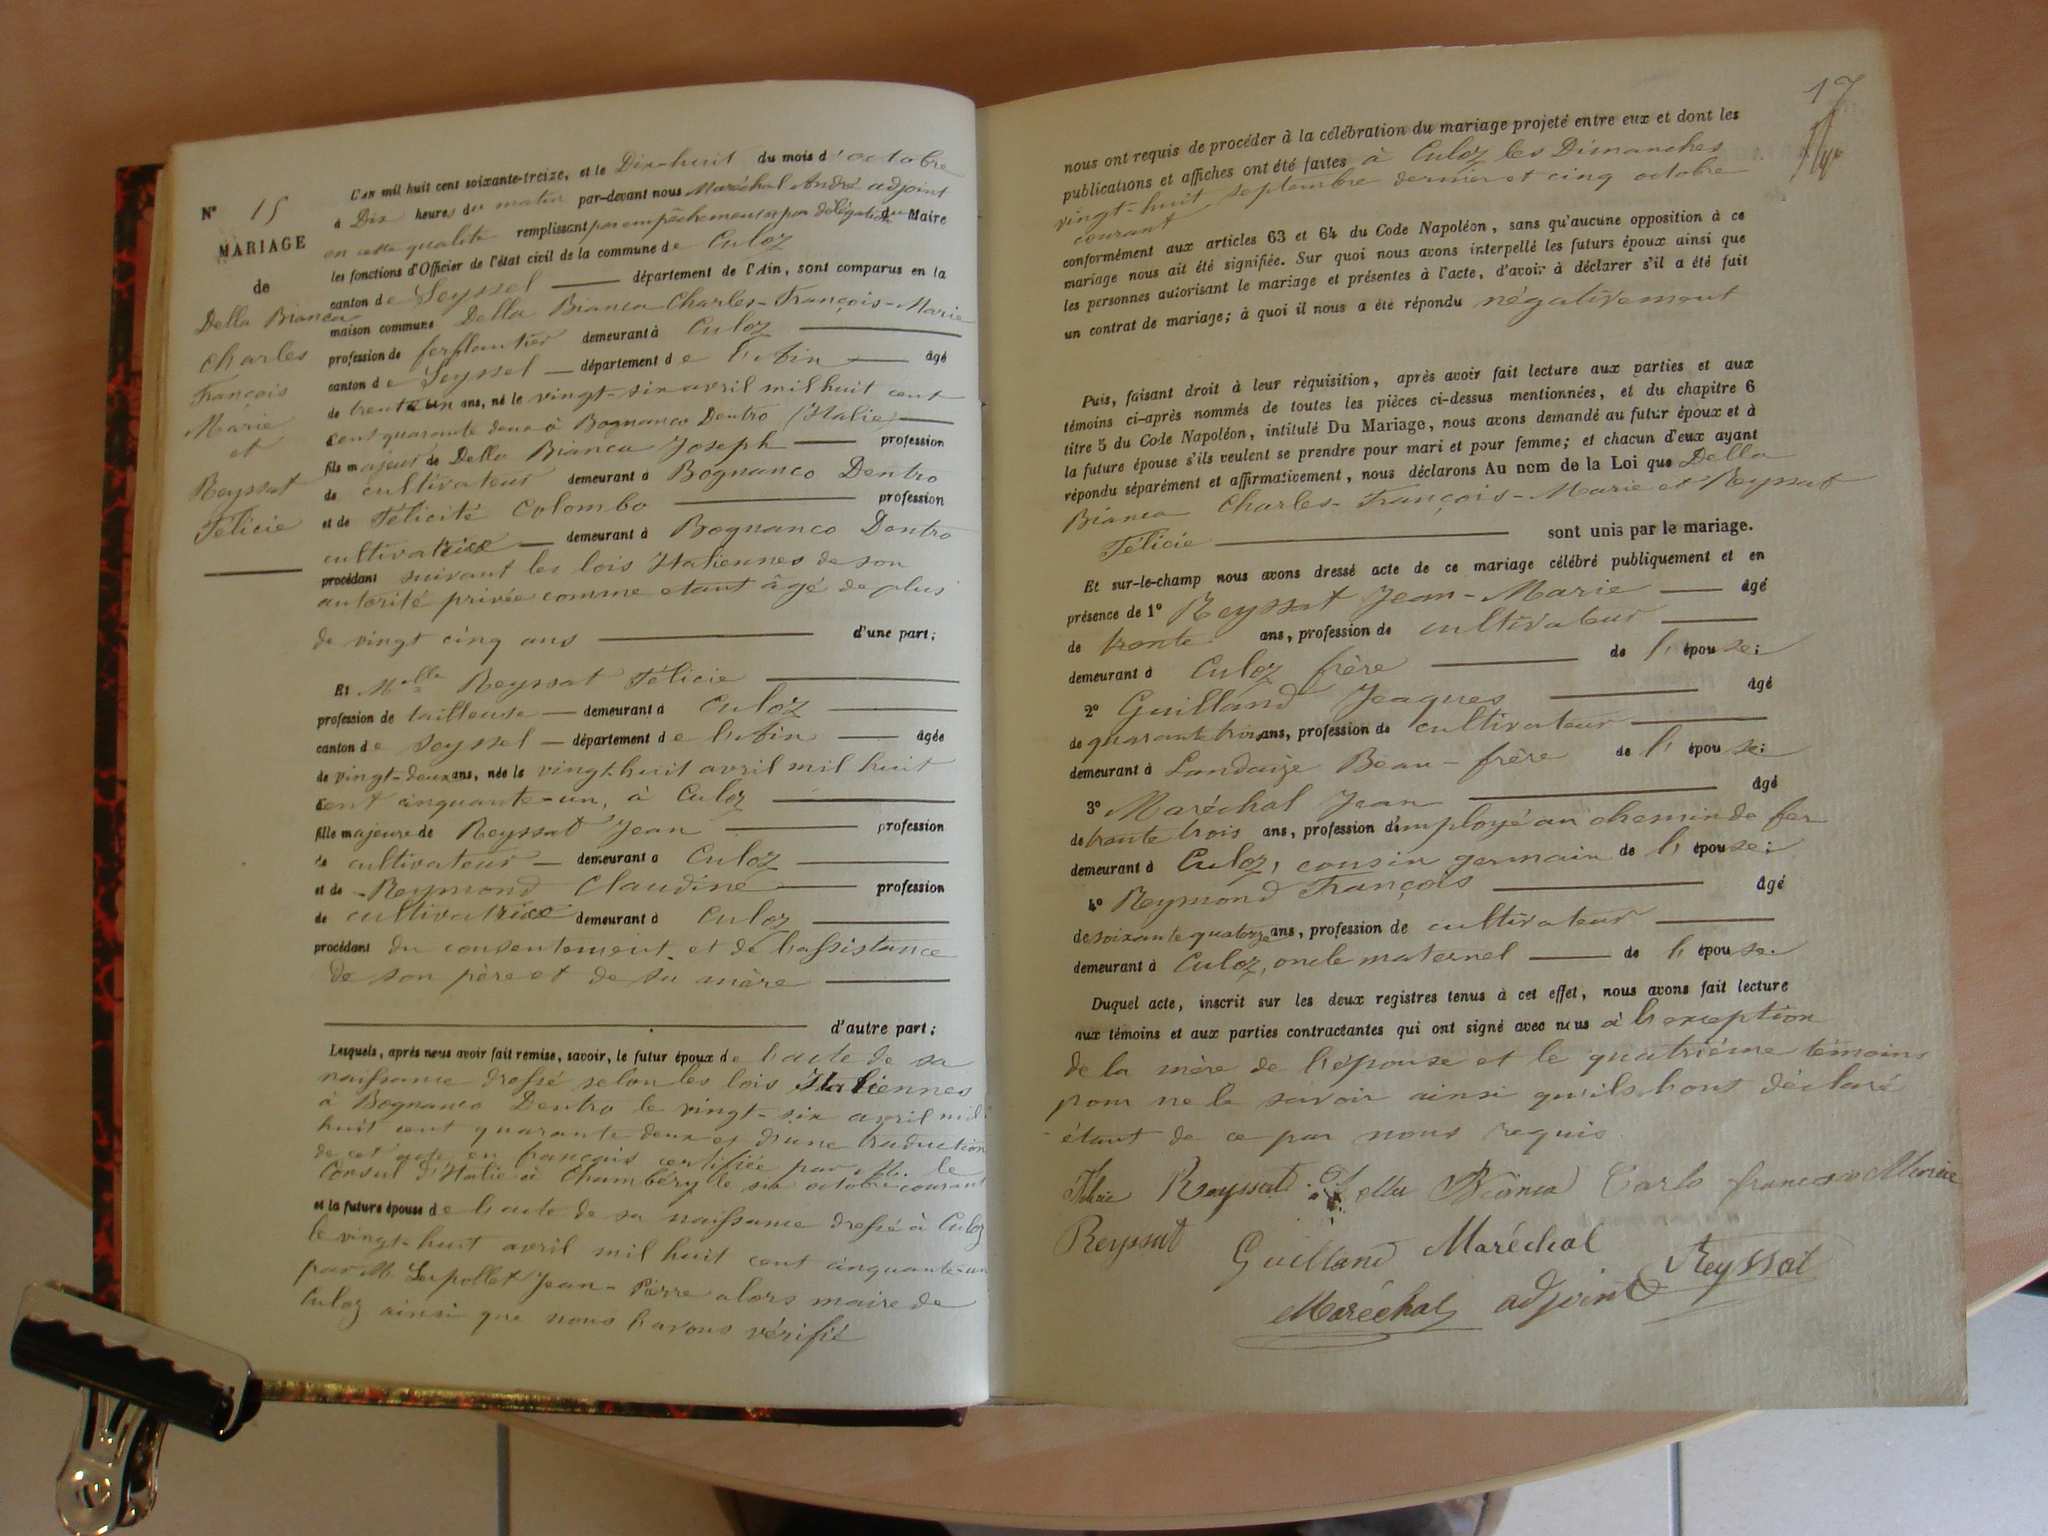 N° 15
MARIAGE
de
Della Bianca
Charles
François
Marie
et
Reyssat
Félicie
L'an mil huit cent soixante-treize, et le Dix-huit du mois d'octobre
à Dix heures du matin par-devant nous Maréchal André adjoint
en cette qualité remplissant par empêchement et par délégation du Maire
les fonctions d'Officier de l'état civil de la commune de Culoz
canton de Seyssel département de l'Ain, sont comparus en la
maison commune Della Bianca Charles-François-Marie
profession de ferblantier demeurant à Culoz
canton de Seyssel département de l'Ain âgé
de trente un ans, né le vingt-six avril mil huit cent
cent quarante deux à Bognanco Dentro (Italie)
fils majeur de Della Bianca Joseph profession
de cultivateur demeurant à Bognanco Dentro
et de Félicité Colombo profession
cultivatrice demeurant à Bognanco Dentro
procédant suivant les lois Italiennes de son
autorité privée comme etant âgé de plus
de vingt cinq ans d'une part;
Et Melle Reyssat Félicie
profession de tailleuse demeurant à Culoz
canton de Seyssel département de l'Ain âgée
de vingt-deux ans, née le vingt-huit avril mil huit
cent cinquante-un, à Culoz
fille majeure de Reyssat Jean profession
de cultivateur demeurant à Culoz
et de Reymond Claudine profession
de cultivatrice demeurant à Culoz
procédant du consentement et de l'assistance
de son père et de sa mère
d'autre part;
Lesquels, après nous avoir fait remise, savoir, le futur époux de l'acte de sa
naissance dressé selon les lois Italiennes
à Bognanco Dentro le vingt-six avril mil
huit cent quarante deux et d'une traduction
de cet acte en français certifiée par M. le
Consul d'Italie à Chambéry le six octobre courant
et la future épouse de l'acte de sa naissance dressé à Culoz
le vingt-huit avril mil huit cent cinquante-un
par M. Serpollet Jean-Pierre alors maire de
Culoz ainsi que nous l'avons vérifié
17
nous ont requis de procéder à la célébration du mariage projeté entre eux et dont les
publications et affiches ont été faites à Culoz les Dimanches
vingt-huit septembre dernier et cinq octobre
courant
conformément aux articles 63 et 64 du Code Napoléon, sans qu'aucune opposition à ce
mariage nous ait été signifiée. Sur quoi nous avons interpellé les futurs époux ainsi que
les personnes autorisant le mariage et présentes à l'acte, d'avoir à déclarer s'il a été fait
un contrat de mariage; à quoi il nous a été répondu négativement
Puis, faisant droit à leur réquisition, après avoir fait lecture aux parties et aux
témoins ci-après nommés de toutes les pièces ci-dessus mentionnées, et du chapitre 6
titre 5 du Code Napoléon, intitulé Du Mariage, nous avons demandé au futur époux et à
la future épouse s'ils veulent se prendre pour mari et pour femme; et chacun d'eux ayant
répondu séparément et affirmativement, nous déclarons Au nom de la Loi que Della
Bianca Charles-François-Marie et Reyssat
Félicie sont unis par le mariage.
Et sur-le-champ nous avons dressé acte de ce mariage célébré publiquement et en
présence de 1° Reyssat Jean-Marie âgé
de trente ans, profession de cultivateur
demeurant à Culoz frère de l'épouse;
2° Guilland Jeaques âgé
de quarante trois ans, profession de cultivateur
demeurant à Landaize Beau-frère de l'épouse;
3° Maréchal Jean âgé
de trente trois ans, profession d'employé au chemin de fer
demeurant à Culoz, cousin germain de l'épouse;
4° Reymond François âgé
de soixante quatorze ans, profession de cultivateur
demeurant à Culoz, oncle maternel de l'épouse.
Duquel acte, inscrit sur les deux registres tenus à cet effet, nous avons fait lecture
aux témoins et aux parties contractantes qui ont signé avec nous à l'exception
de la mère de l'épouse et le quatrième témoins
pour ne le savoir ainsi qu'ils l'ont déclaré
étant de ce par nous requis
Félicie Reyssat Della Bianca Carlo francesco Maria
Reyssat Guilland Maréchal Reyssat
Maréchal adjoint